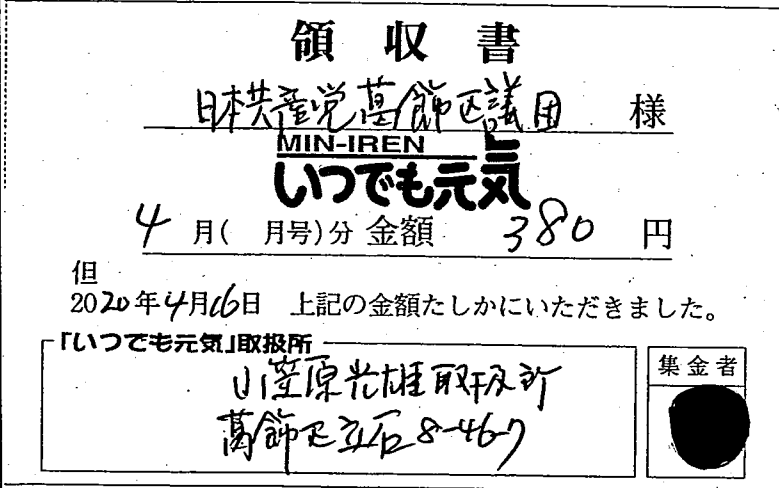 領収書
日本共産党葛飾区議団 様
MIN-IREN
いつでも元気
4月( 月号)分 金額 380 円
但
2020年4月16日 上記の金額たしかにいただきました。
「いつでも元気」取扱所
小笠原光雄取扱所
葛飾区立石8-46-7
集金者